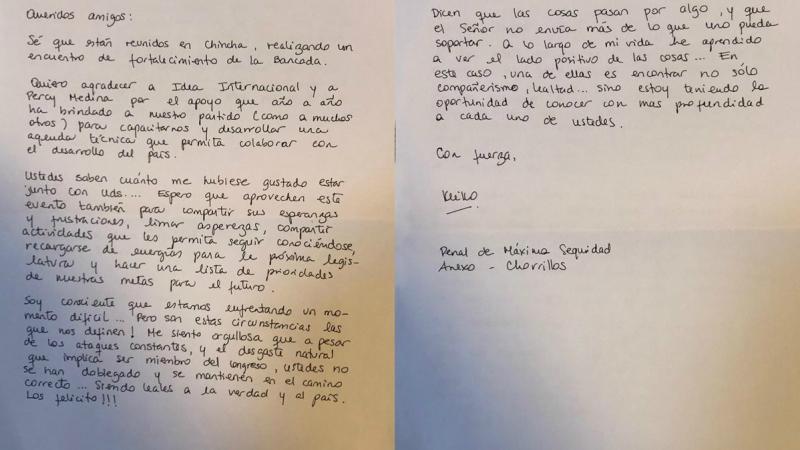 Queridos amigos:
Sé que están reunidos en Chincha, realizando un
encuentro de fortalecimiento de la Bancada.
Quiero agradecer a Idea Internacional y a
Percy Medina por el apoyo que año a año
ha brindado a nuestro partido (como a muchos
otros) para capacitarnos y desarrollar una
agenda técnica que permita colaborar con
el desarrollo del país.
Ustedes saben cuánto me hubiese gustado estar
junto con uds.... Espero que aprovechen este
evento también para compartir sus esperanzas
y frustraciones, limar asperezas, compartir
actividades que les permita seguir conociéndose,
recargarse de energías para la próxima legis-
latura y hacer una lista de prioridades
de nuestras metas para el futuro.
Soy consciente que estamos enfrentando un mo-
mento difícil... Pero son estas circunstancias las
que nos definen! Me siento orgullosa que a pesar
de los ataques constantes, y el desgaste natural
que implica ser miembro del Congreso, ustedes no
se han doblegado y se mantienen en el camino
correcto... Siendo leales a la verdad y al país.
Los felicito!!!
Dicen que las cosas pasan por algo, y que
el Señor no envía más de lo que uno pueda
soportar. A lo largo de mi vida he aprendido
a ver el lado positivo de las cosas... En
este caso, una de ellas es encontrar no sólo
compañerismo, lealtad... sino estoy teniendo la
oportunidad de conocer con mas profundidad
a cada uno de ustedes.
Con fuerza,
Keiko
Penal de Máxima Seguridad
Anexo - Chorrillos